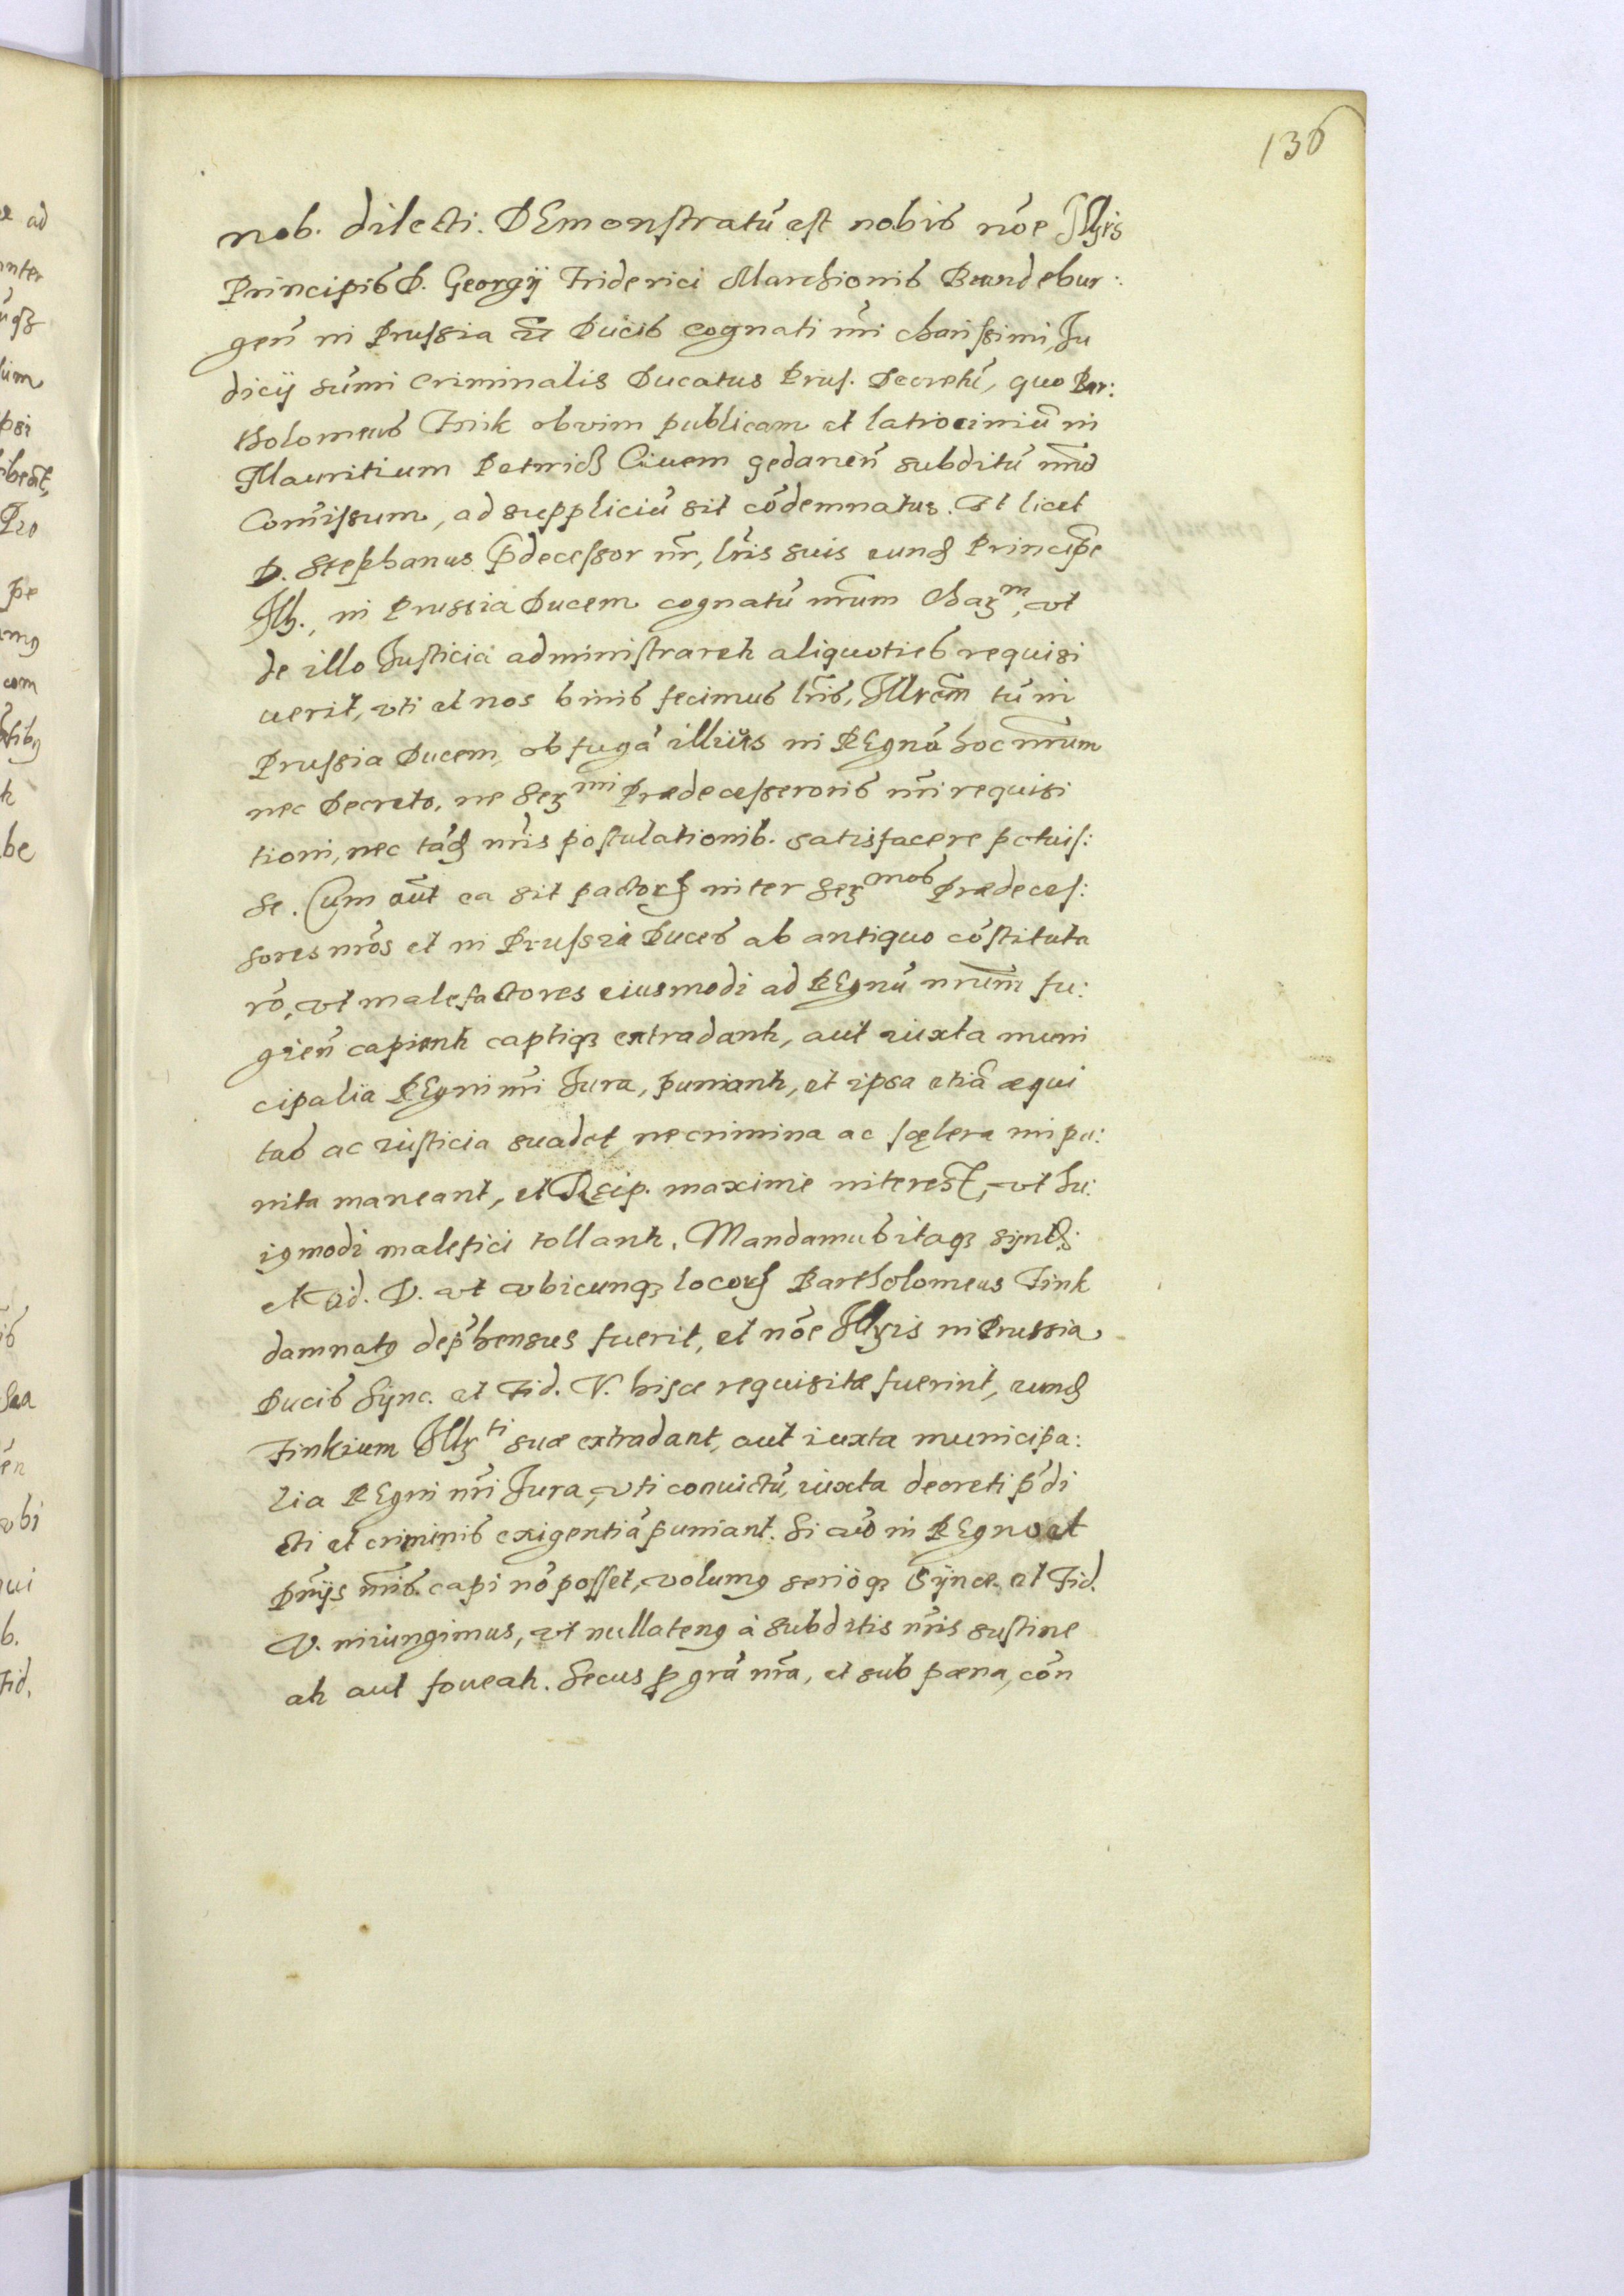 136
nob. dilecti. DEmonstratū est nobis nōe Illris
Principis D. Georgij Friderici Marchionis Brandebur:
gen̄ in Prussia etc Ducis cognati nr̄i charissimi, Ju
dicij sūmi Criminalis Ducatus Prus. Decretū, quo Bar:
tholomeus Fink ob vim publicam et latrociniū in
Mauritium Petrich Ciuem gedanen̄ subditū nr̄ū
Com̄issum, ad suppliciū sit cōdemnatus. Et licet
D. Stephanus p̄decessor nr̄, lr̄is suis eundꝫ Principē
Ill., in Prussia Ducem cognatū nr̄um Chaꝫᵐ, vt
de illo Justiciā administrareh aliquoties requisi
uerit, vti et nos binis fecimus lr̄is, Illrem̄ tū in
Prussia Ducem, ob fugā illius in REgnū hoc nr̄um
nec Decreto, ne Serᵐⁱ Prædecesseroris nr̄i requisi
tioni, nec tādꝫ nr̄is postulationib. satisfacere potuis:
se. Cum aūt ea sit pactorꝝ inter Serᵐᵒˢ Prædeces:
sores nr̄os et in Prussia Duces ab antiquo cōstituta
rō, vt malefactores eiusmodi ad REgnū nr̄um fu:
gien̄ capianh captiqꝫ extradanh, aut iuxta muni
cipalia REgni nr̄i Jura, punianh, et ipsa etiā æqui
tas ac iusticia suadet, ne crimina ac scęlera impu:
nita maneant, et Reip. maxime interest, vt hu:
iꝰmodi malefici tollanh. Mandamus itaqꝫ synctꝫ:
et Fid. V. vt vbicunqꝫ locorꝝ Bartholomeus Fink
damnatꝰ dep̄hensus fuerit, et nōe Illris in Prussia
Ducis Sync. et Fid. V. hisce requisitæ fuerint, eundꝫ
Finkium Illrᵗⁱ suæ extradant, aut iuxta municipa:
lia REgni nr̄i Jura, vti conuictū, iuxta decreti p̄di
cti et criminis exigentiā puniant. Si aūo in REgno et
Prn̄ijs nr̄is capi nō posset, volumꝰ serioqꝫ Sync. et Fid.
V. iniungimus, vt nullatenꝰ à subditis nr̄is sustine
ah aut foueah. Secus ꝓ grā nr̄a, et sub pæna, cōn